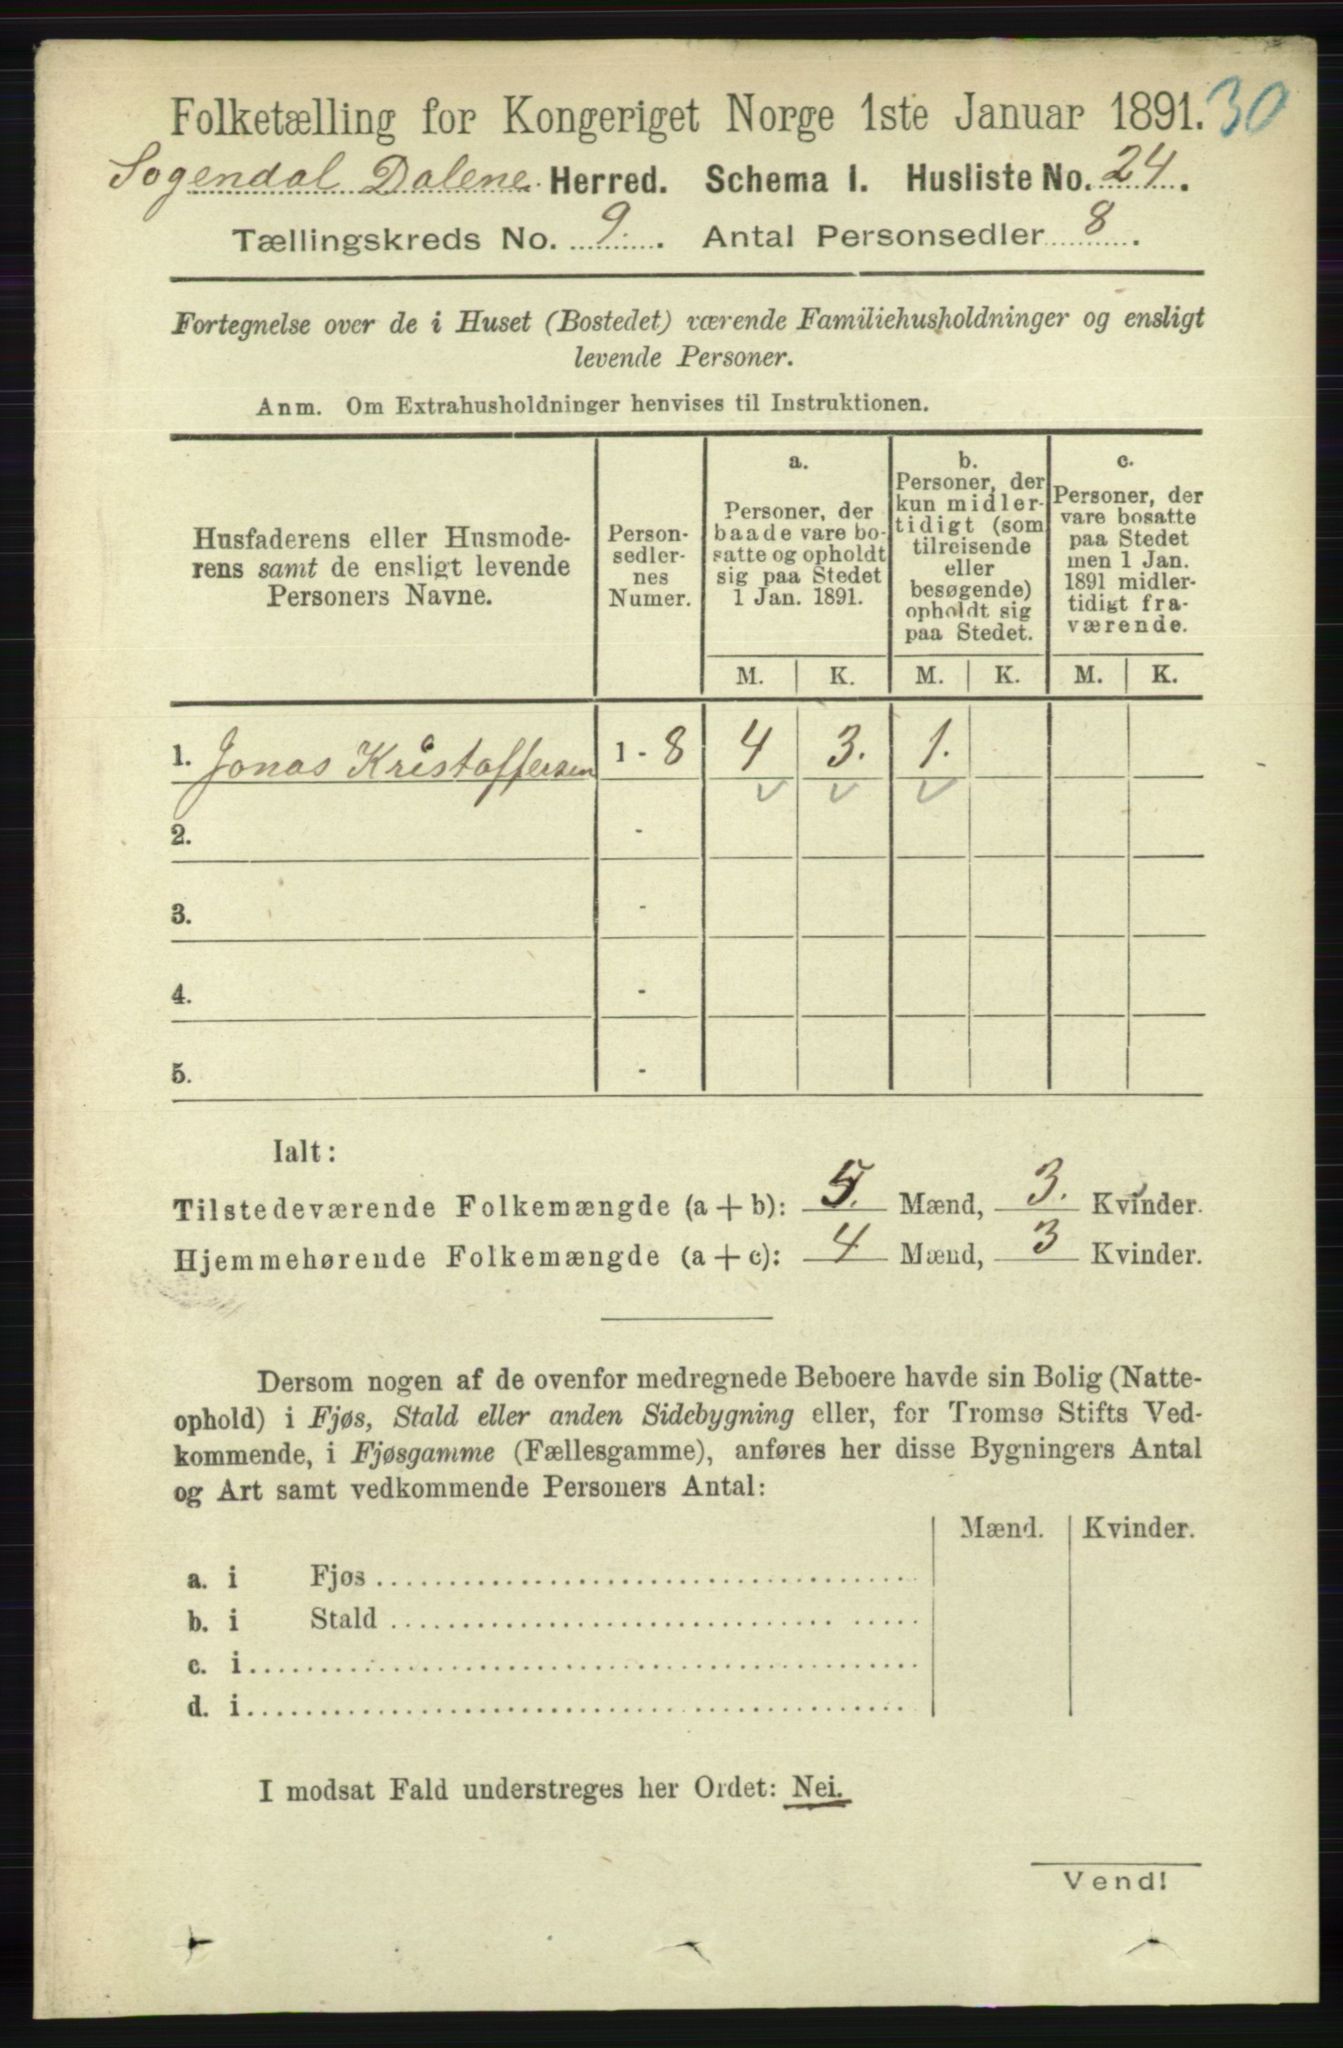 Folketælling for Kongeriget Norge 1ste Januar 1891. 30
Sogendal Dalene Herred. Schema 1. Husliste No. 24.
Tællingskreds No. 9. Antal Personsedler 8.
Fortegnelse over de i Huset (Bostedet) værende Familiehusholdninger og ensligt
levende Personer.
Anm. Om Extrahusholdninger henvises til Instruktionen.
Husfaderens eller Husmode-
rens samt de ensligt levende
Personers Navne.
Person-
sedler-
nes
Numer.
a.
Personer, der
baade vare bo-
satte og opholdt
sig paa Stedet
1 Jan. 1891.
b.
Personer, der
kun midler-
tidigt (som
tilreisende
eller
besøgende)
opholdt sig
paa Stedet.
c.
Personer, der
vare bosatte
paa Stedet
men 1 Jan.
1891 midler-
tidigt fra-
værende.
M. K. M. K. M. K.
1. Jonas Kristoffersen 1 - 8 4 3. 1.
2. -
3. -
4. -
5. -
Ialt:
Tilstedeværende Folkemængde (a + b): 5. Mænd, 3. Kvinder.
Hjemmehørende Folkemængde (a + c): 4 Mænd, 3 Kvinder.
Dersom nogen af de ovenfor medregnede Beboere havde sin Bolig (Natte-
ophold) i Fjøs, Stald eller anden Sidebygning eller, for Tromsø Stifts Ved-
kommende, i Fjøsgamme (Fællesgamme), anføres her disse Bygningers Antal
og Art samt vedkommende Personers Antal:
Mænd. Kvinder.
a. i Fjøs
b. i Stald
c. i
d. i
I modsat Fald understreges her Ordet: Nei.
Vend!